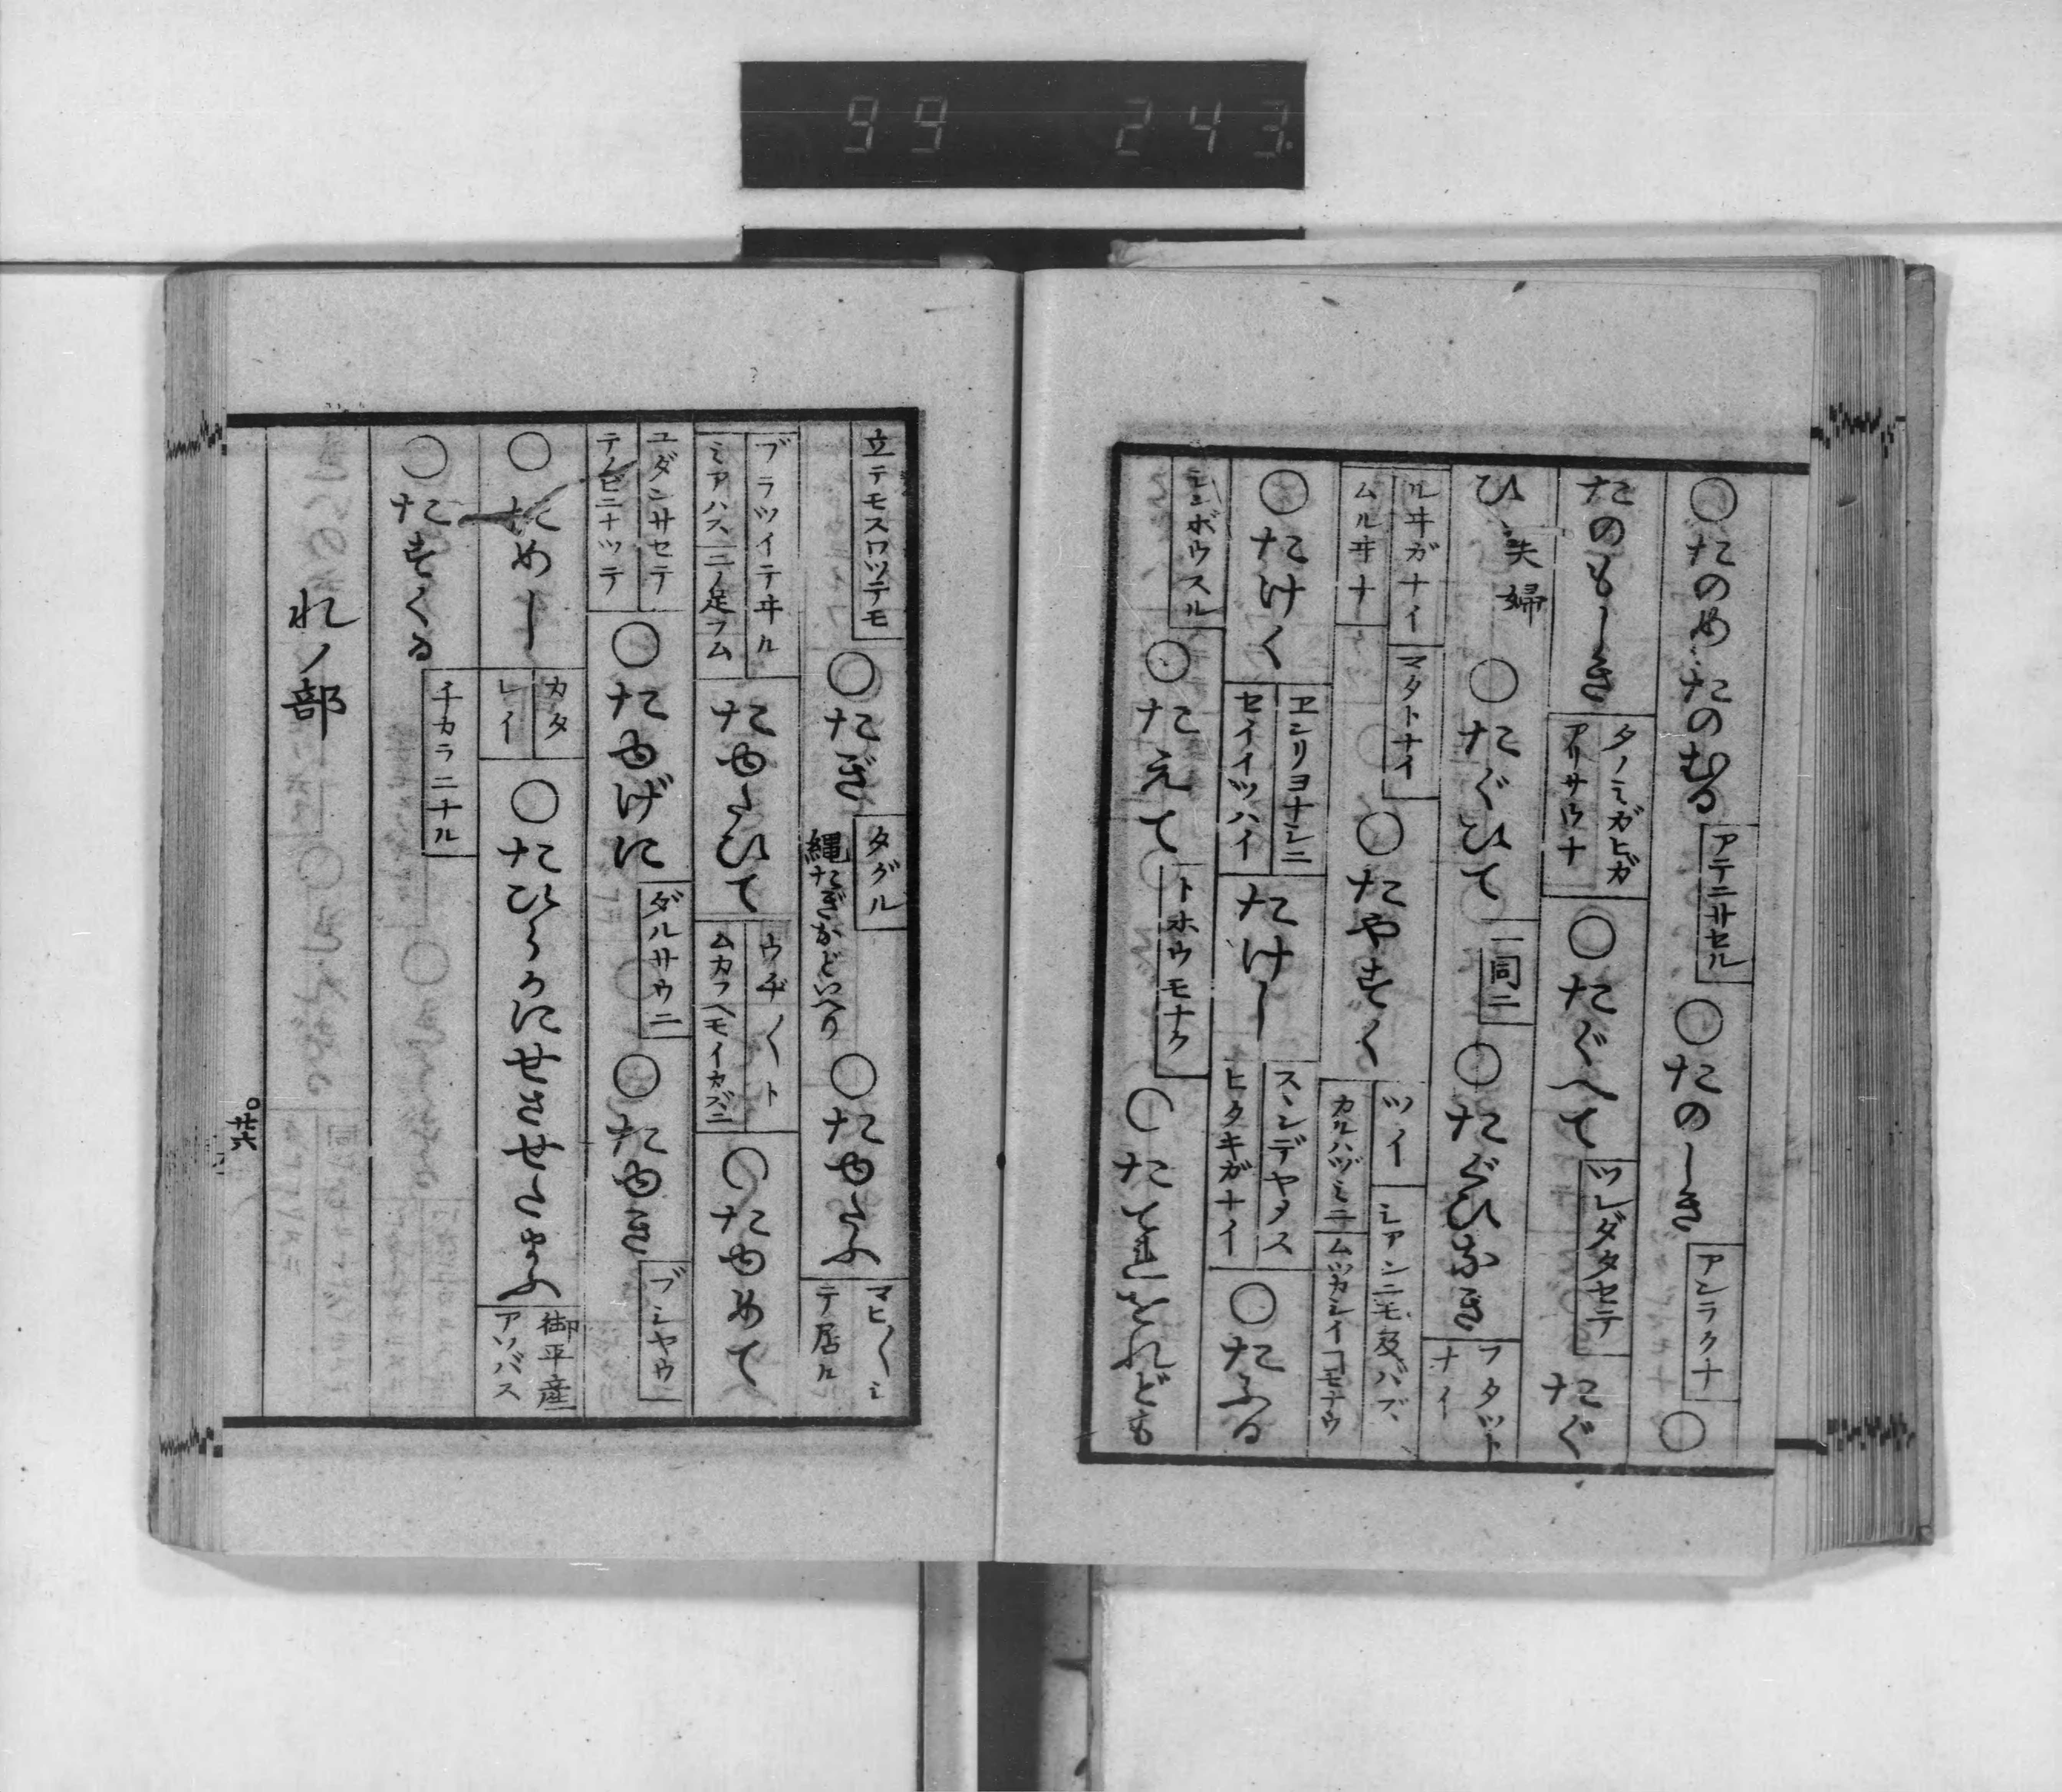 99 243
○たのめたのむる アテニサセル ○たのしき アンラクナ ○
たのもしき タノミガヒガアリサウナ ○たぐへて ツレダタセテ たぐ
ひ 夫婦 ○たぐひて 一同ニ ○たぐひなき フタツトナイ
ルヰガナイ ムルヰナ マタトナイ ○たやすく ツイ カルハヅミニ シアンニモ及バズ ムツカシイコモナウ
○たけく ヱンリヨナシニ セイイツハイ たけし スヽンデヤヌス ヒタキガナイ ○たふる
シンボウスル ○たえて トホウモナク ○たてれをれども
立テモスワツテモ ○たぎ タグル 縄たぎなどいへり ○たゆたふ マヒ〱シテ居ル
ブラツイテヰル ミアハス 二ノ足フム たゆたひて ウヂ〱ト ムカフヘモイカズニ ○たゆめて
ユダンサセテ テノビニナツテ ○たゆげに ダルサウニ ○たゆき ブシヤウ
○ためし カタ レイ ○たひらかにせさせたまふ 御平産アソバス
○たすくる チカラニナル
れノ部
廿六